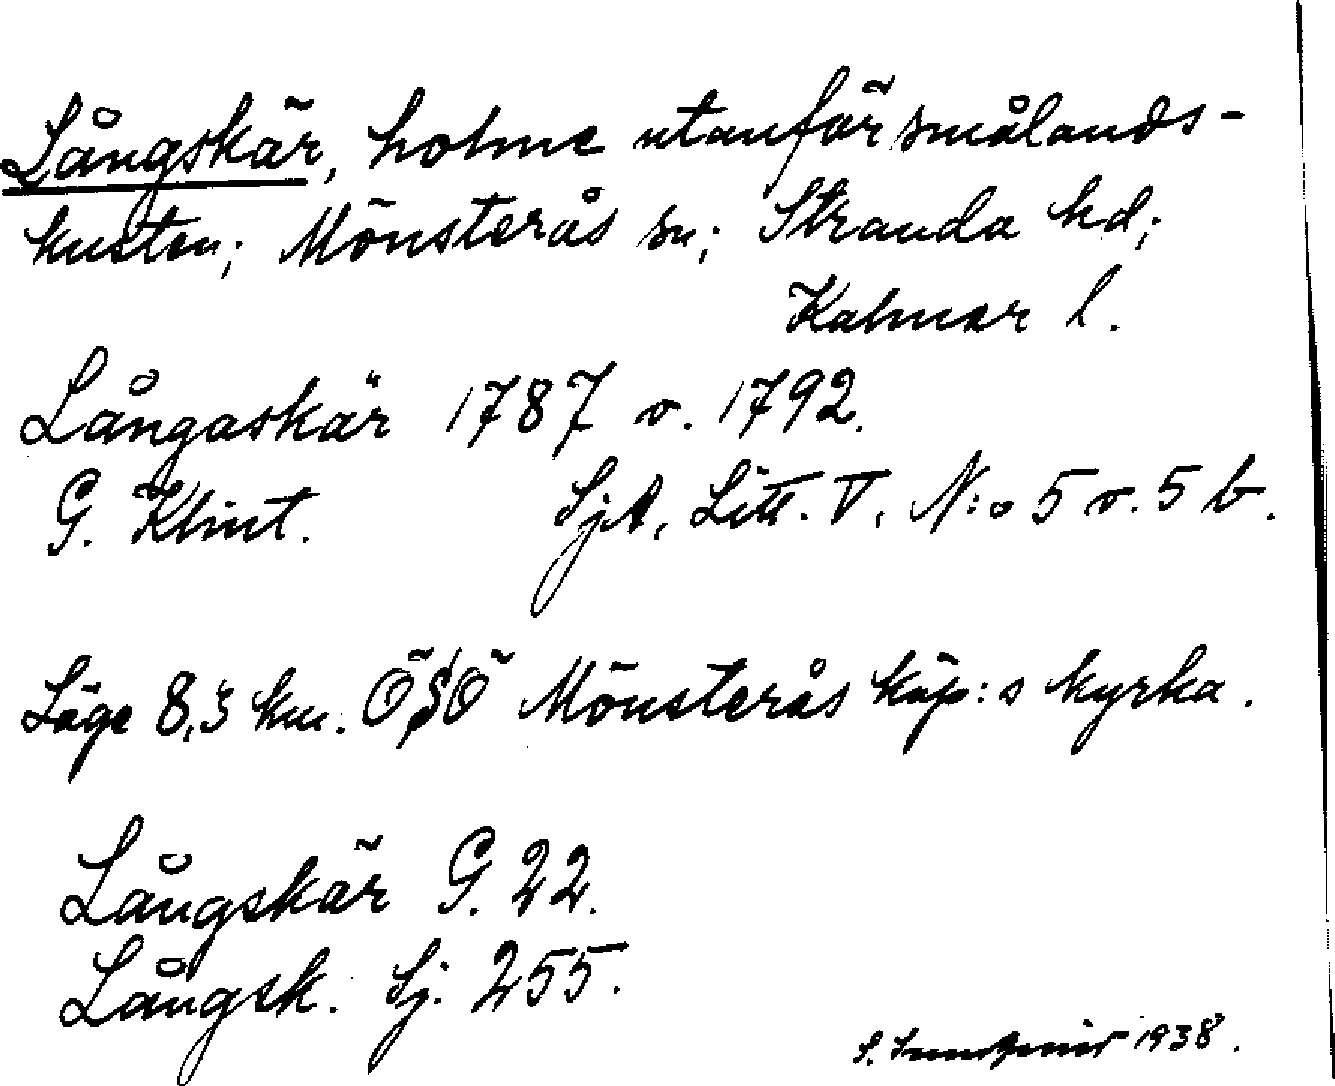 Långskär, holme utanför smålands-
kusten; Mönsterås sn; Stranda hd;
Kalmar l.
Långaskär 1787 o. 1792.
G. Klint. SjA, Litt. V, N:o 5 o. 5 b.
Läge 8,3 km. ÖSÖ Mönsterås köp:s kyrka.
Långskär G. 22.
Långsk. Sj. 255.
S. 1938.